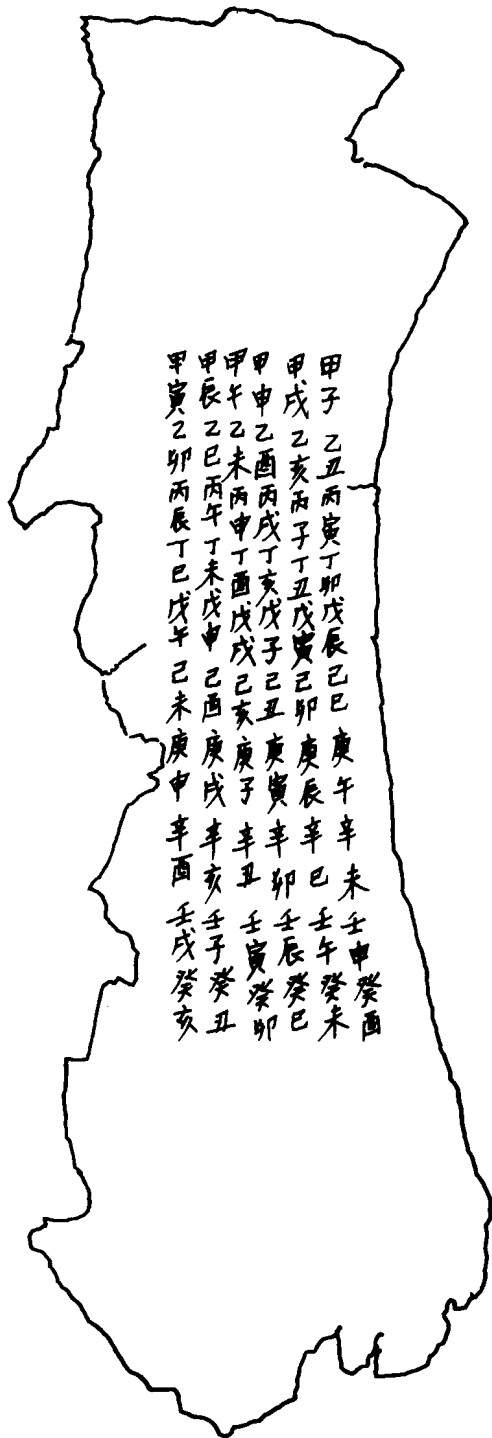 甲子乙丑丙寅丁卯戊辰己巳庚午辛未壬申癸酉
甲戌乙亥丙子丁丑戊寅己卯庚辰辛巳壬午癸未
甲申乙酉丙戌丁亥戊子己丑庚寅辛卯壬辰癸巳
甲午乙未丙申丁酉戊戌己亥庚子辛丑壬寅癸卯
甲辰乙巳丙午丁未戊申己酉庚戌辛亥壬子癸丑
甲寅乙卯丙辰丁巳戊午己未庚申辛酉壬戌癸亥